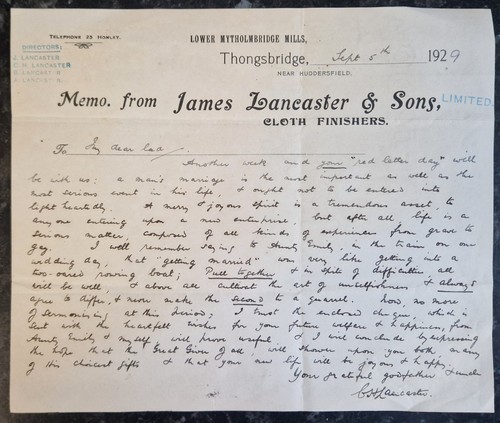 TELEPHONE 25 HONLEY.
LOWER MYTHOLMBRIDGE MILLS,
Thongsbridge, Sept 5th 1929
NEAR HUDDERSFIELD.
DIRECTORS:
J. LANCASTER
C. H. LANCASTER
LANCASTER
Memo. from James Lancaster & Sons, LIMITED
CLOTH FINISHERS.
To My dear lad,
Another week and your "red letter day" will
be with us: a man's marriage is the most important as well as the
most serious event in his life, & ought not to be entered into
light heartedly. A merry & joyous spirit is a tremendous asset, to
anyone entering upon a new enterprise, but after all, life is a
serious matter, composed of all kinds of experiences from grave to
gay. I well remember saying to Aunty Emily, in the train on our
wedding day, that "getting married" was very like getting into a
two-oared rowing boat; Pull together & in spite of difficulties, all
will be well, & above all cultivate the art of unselfishness & always
agree to differ, & never make the second to a quarrel. Now, no more
of sermonising at this period; I trust the enclosed cheque, which is
sent with the heartfelt wishes for your future welfare & happiness, from
Aunty Emily & myself will prove useful, & I will conclude by expressing
the hope that the Great Giver of all, will shower upon you both, many
of His choicest gifts & that your new life will be joyous & happy.
Your grateful godfather & uncle
C H Lancaster.